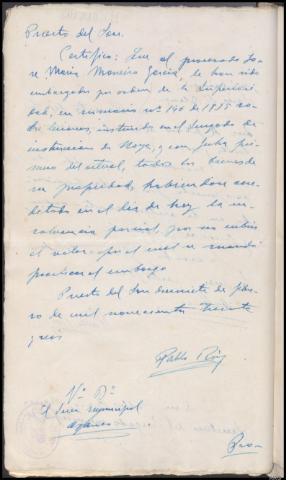 Puerto del Son.
Certifico: Que al procesado Jo-
se Maria Maneiro Garcia, le han sido
embargados por orden de la Superiori-
dad, en sumario nº 146 de 1935 so-
bre lesiones, instruido en el Juzgado de
instruccion de Noya, y con fecha pri-
mero del actual, todos los bienes de
su propiedad, habiendose decre-
tado en el dia de hoy la in-
solvencia parcial, por no cubrir
el valor por el cual se mandó
practicar el embargo.
Puerto del Son de febre-
ro de mil novecientos treinta
y seis
Pablo
Vº Bº
El Juez municipal